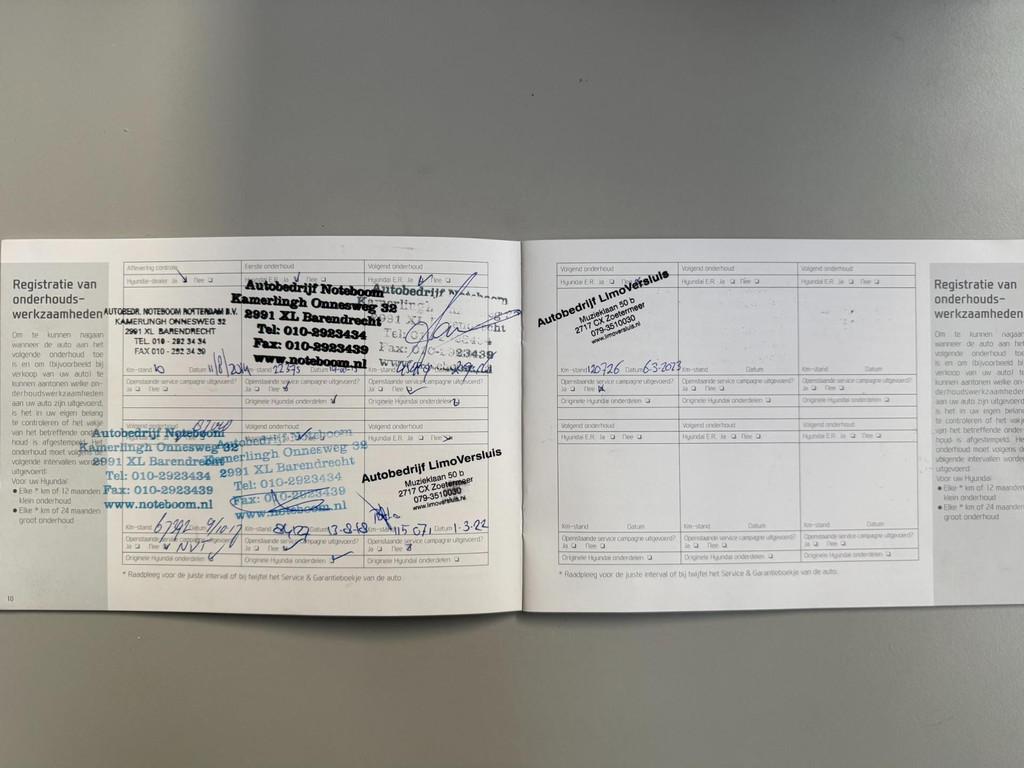 Registratie van
onderhouds-
werkzaamheden
Om te kunnen nagaan
wanneer de auto aan het
volgende onderhoud toe
is en om (bijvoorbeeld bij
verkoop van uw auto) te
kunnen aantonen welke on-
derhoudswerkzaamheden
aan uw auto zijn uitgevoerd,
is het in uw eigen belang
te controleren of het vakje
van het betreffende onder-
houd is afgestempeld. Het
onderhoud moet volgens de
volgende intervallen worden
uitgevoerd:
Voor uw Hyundai:
● Elke * km of 12 maanden
klein onderhoud
● Elke * km of 24 maanden
groot onderhoud
10
Aflevering controle
Hyundai-dealer Ja Nee
AUTOBEDR. NOTEBOOM ROTTERDAM B.V.
KAMERLINGH ONNESWEG 32
2991 XL BARENDRECHT
TEL. 010 - 292 34 34
FAX 010 - 292 34 39
Km-stand 10 Datum 11/8/2014
Eerste onderhoud
Hyundai E.R. Ja Nee
Autobedrijf Noteboom
Kamerlingh Onnesweg 32
2991 XL Barendrecht
Tel: 010-2923434
Fax: 010-2923439
www.noteboom.nl
Km-stand Datum
Openstaande service campagne uitgevoerd?
Ja Nee
Originele Hyundai onderdelen
Volgend onderhoud
Autobedrijf Noteboom
Openstaande service campagne uitgevoerd?
Ja Nee
Originele Hyundai onderdelen
Volgend onderhoud
Autobedrijf Noteboom
Kamerlingh Onnesweg 32
2991 XL Barendrecht
Tel: 010-2923434
Fax: 010-2923439
www.noteboom.nl
Km-stand Datum
Openstaande service campagne uitgevoerd?
Ja Nee NVT
Originele Hyundai onderdelen
Autobedrijf Noteboom
Kamerlingh Onnesweg 32
2991 XL Barendrecht
Tel: 010-2923434
Fax: 010-2923439
www.noteboom.nl
Km-stand Datum 13-8-18
Openstaande service campagne uitgevoerd?
Ja Nee
Originele Hyundai onderdelen
Volgend onderhoud
Hyundai E.R. Ja Nee
Autobedrijf LimoVersluis
Muzieklaan 50 b
2717 CX Zoetermeer
079-3510030
www.limoversluis.nl
Km-stand 115071 Datum 1-3-22
Openstaande service campagne uitgevoerd?
Ja Nee
Originele Hyundai onderdelen
* Raadpleeg voor de juiste interval of bij twijfel het Service & Garantieboekje van de auto.
Volgend onderhoud
Hyundai E.R. Ja Nee
Autobedrijf LimoVersluis
Muzieklaan 50 b
2717 CX Zoetermeer
079-3510030
www.limoversluis.nl
Km-stand 120726 Datum 6-3-2023
Openstaande service campagne uitgevoerd?
Ja Nee
Originele Hyundai onderdelen
Volgend onderhoud
Hyundai E.R. Ja Nee
Km-stand Datum
Openstaande service campagne uitgevoerd?
Ja Nee
Originele Hyundai onderdelen
Volgend onderhoud
Hyundai E.R. Ja Nee
Km-stand Datum
Openstaande service campagne uitgevoerd?
Ja Nee
Originele Hyundai onderdelen
Volgend onderhoud
Hyundai E.R. Ja Nee
Km-stand Datum
Openstaande service campagne uitgevoerd?
Ja Nee
Originele Hyundai onderdelen
Volgend onderhoud
Hyundai E.R. Ja Nee
Km-stand Datum
Openstaande service campagne uitgevoerd?
Ja Nee
Originele Hyundai onderdelen
Volgend onderhoud
Hyundai E.R. Ja Nee
Km-stand Datum
Openstaande service campagne uitgevoerd?
Ja Nee
Originele Hyundai onderdelen
* Raadpleeg voor de juiste interval of bij twijfel het Service & Garantieboekje van de auto.
Registratie van
onderhouds-
werkzaamheden
Om te kunnen nagaan
wanneer de auto aan het
volgende onderhoud toe
is en om (bijvoorbeeld bij
verkoop van uw auto) te
kunnen aantonen welke on-
derhoudswerkzaamheden
aan uw auto zijn uitgevoerd,
is het in uw eigen belang
te controleren of het vakje
van het betreffende onder-
houd is afgestempeld. Het
onderhoud moet volgens de
volgende intervallen worden
uitgevoerd:
Voor uw Hyundai:
● Elke * km of 12 maanden
klein onderhoud
● Elke * km of 24 maanden
groot onderhoud